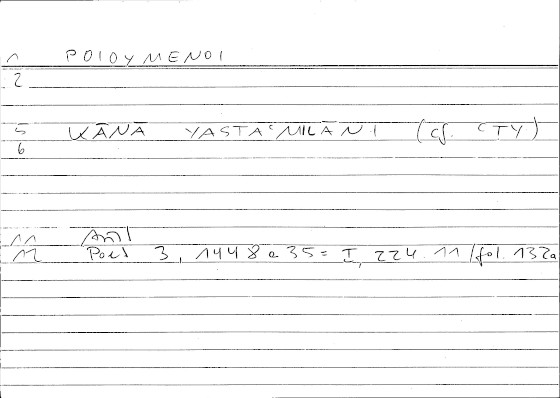 1 POIOYMENOI
2
5 KĀNĀ YASTAʿMILĀNI (cf. ʿTY)
6
11 Arist
12 Poet 3, 1448 a 35 = I, 224.11 / fol. 132a